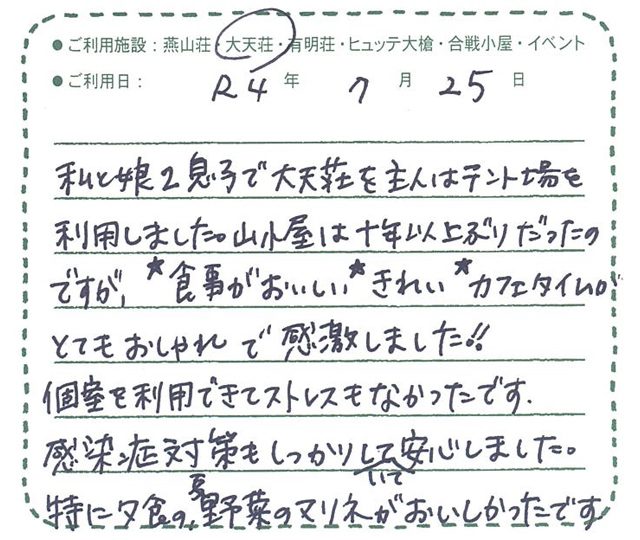 ●ご利用施設：燕山荘・大天荘・有明荘・ヒュッテ大槍・合戦小屋・イベント
●ご利用日： R4 年 7 月 25 日
私と娘2息子で大天荘を主人はテント場を
利用しました。山小屋は十年以上ぶりだったの
ですが、★食事がおいしい★きれい★カフェタイムが
とてもおしゃれで感激しました!!
個室を利用できてストレスもなかったです.
感染症対策もしっかりしていて安心しました。
特に夕食の夏野菜のマリネがおいしかったです